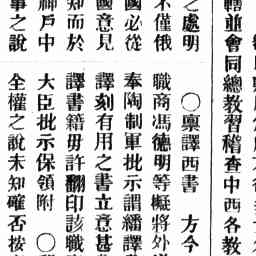 轄並會同總教習稽查中西各教
之處明 ○稟譯西書 方今
不僅俄 職商馮德明等擬將外
國必從 奉陶制軍批示謂繙譯
國意見 譯刻有用之書立意甚
知而於 譯書籍毋許翻印該職
神戶中 大臣批示保領附 ○
事之說 全權之說未知確否按